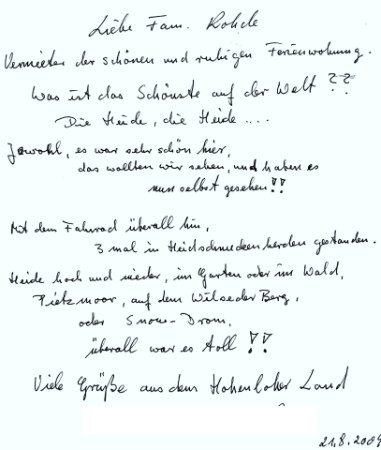 Liebe Fam. Rohde
Vermieter der schönen und ruhigen Ferienwohnung.
Was ist das Schönste auf der Welt ??
Die Heide, die Heide ....
Jawohl, es war sehr schön hier,
das wollten wir sehen, und haben es
nun selbst gesehen !!
Mit dem Fahrrad überall hin,
3 mal in Heidschnuckenherden gestanden.
Heide hoch und nieder, im Garten oder im Wald,
Pietzmoor, auf dem Wilseder Berg,
oder Snow-Dom,
überall war es toll !!
Viele Grüße aus dem Hohenloher Land
21.8.2009